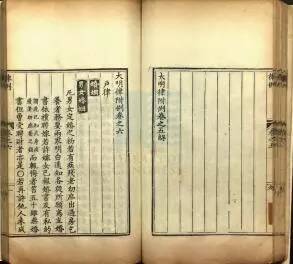 大明律附例卷之五終
大明律附例卷之六
戶律
婚姻
男女婚姻
凡男女定婚之初若有殘疾老幼庶出過房乞
養者務要兩家明白通知各從所願寫立婚
書依禮聘嫁若許嫁女已報婚書及有私約
而輒悔者笞五十雖無婚
書但曾受聘財者亦是○若再許他人未成